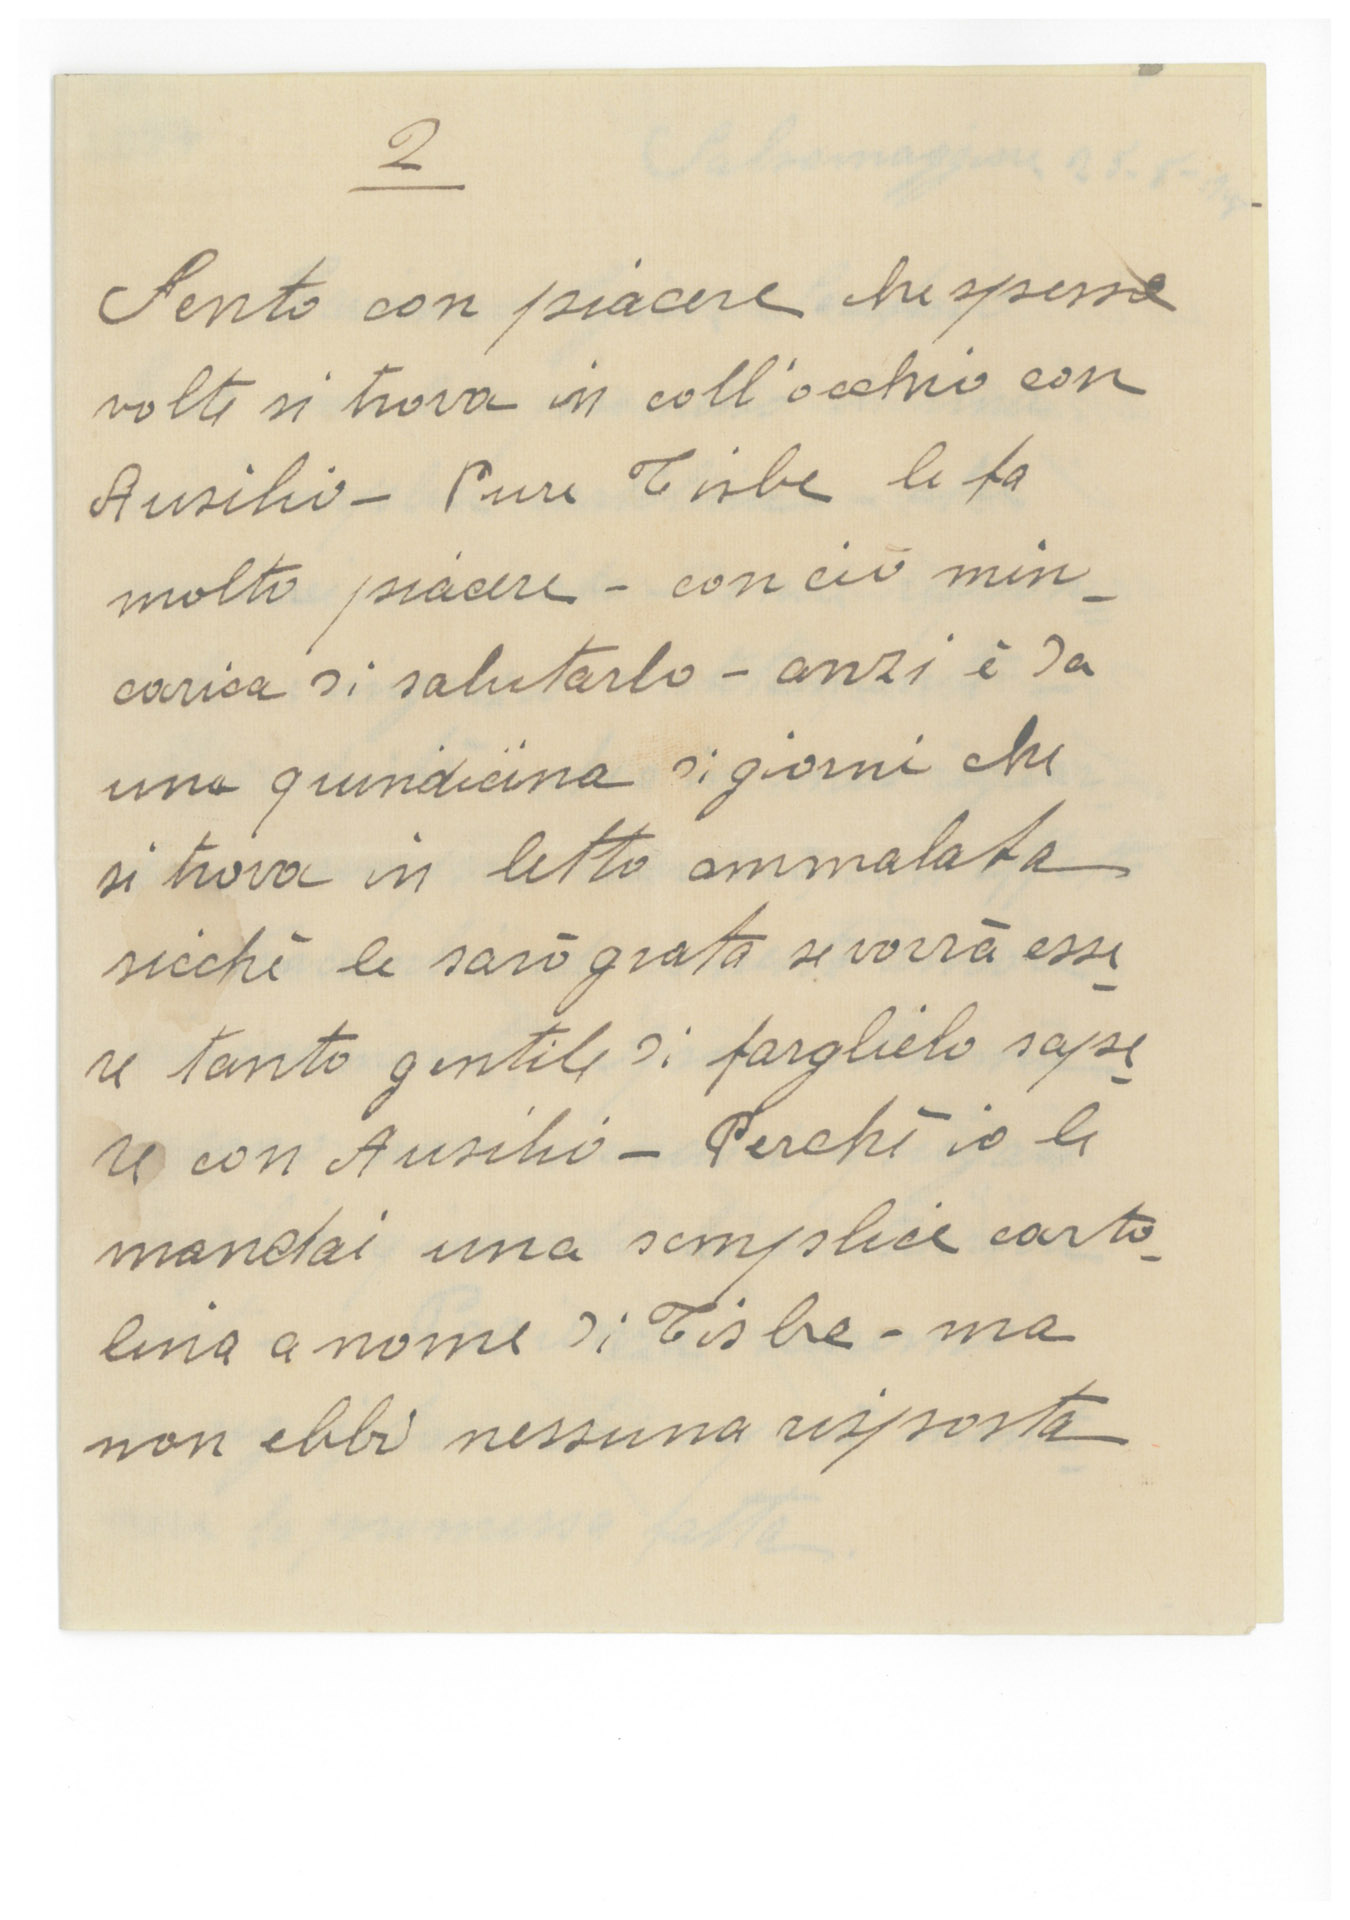 2
Sento con piacere che spesse
volte si trova in coll'occhio con
Ausilio - Pure Tisbe le fa
molto piacere - con ciò min-
carica di salutarlo - anzi è da
una quindicina di giorni che
si trova in letto ammalata
sicchè le sarò grata se vorrà esse-
re tanto gentile di farglielo sape-
re con Ausilio - Perchè io le
mandai una semplice carto-
lina a nome di Tisbe - ma
non ebbi nessuna risposta